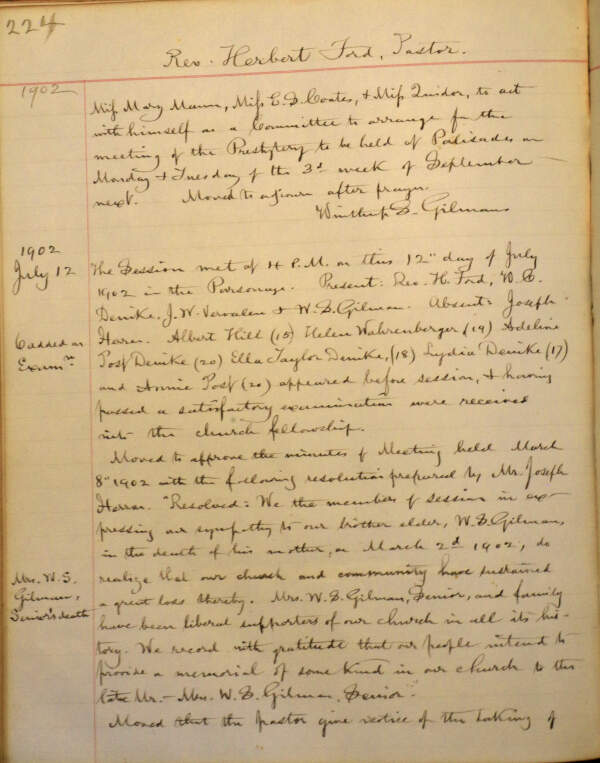 224
Rev. Herbert Ford, Pastor.
1902
Miss Mary Mann, Miss E. S. Coates, & Miss Quidor, to act
with himself as a Committee to arrange for the
meeting of the Presbytery to be held at Palisades on
Monday & Tuesday of the 3d week of September
next. Moved to adjourn after prayer.
Winthrop S. Gilman
1902
July 12
The Session met at 4 P.M. on this 12" day of July
1902 in the Parsonage. Present: Rev. H. Ford, W. B.
Denike, J. W. Vervalen & W. S. Gilman. Absent: Joseph
6 added on
Exam.n
Harra. Albert Hill (15) Helen Wahrenberger (19) Adeline
Post Denike (20) Ella Taylor Denike, (18) Lydia Denike (17)
and Annie Post (20) appeared before session, & having
passed a satisfactory examination were received
into the church fellowship.
Moved to approve the minutes of Meeting held March
8" 1902 with the following resolution prepared by Mr. Joseph
Harra. "Resolved: We the members of session in ex-
pressing our sympathy to our brother elder, W. S. Gilman,
in the death of his mother, on March 2d 1902, do
Mrs. W. S.
Gilman,
Senior's death
realize that our church and community have sustained
a great loss thereby. Mrs. W. S. Gilman, Senior, and family
have been liberal supporters of our church in all its his-
tory. We record with gratitude that our people intend to
provide a memorial of some kind in our church to the
late Mr. - Mrs. W. S. Gilman, Senior."
Moved that the pastor give notice of the taking of